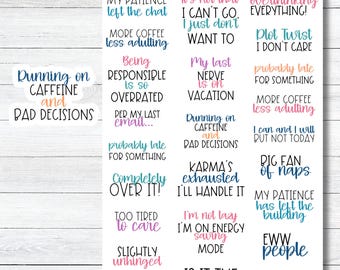 Running on
CAFFEINE
and
BAD DECISIONS
MY PATIENCE
left the chat
MORE COFFEE
less adulting
Being
RESPONSIBLE
is so
OVERRATED
PER MY LAST
email...
probably late
FOR SOMETHING
Completely
OVER IT!
TOO TIRED
to care
SLIGHTLY
unhinged
I CAN'T GO
I just don't
WANT TO
My last
NERVE
is on
VACATION
Running on
CAFFEINE
and
BAD DECISIONS
KARMA'S
exhausted
I'LL HANDLE IT
I'm not lazy
I'M ON ENERGY
saving
MODE
IS IT TIME
overthinking
EVERYTHING!
Plot Twist
I DON'T CARE
probably late
FOR SOMETHING
MORE COFFEE
less adulting
I can and I will
BUT NOT TODAY
BIG FAN
of naps
MY PATIENCE
has left the
building
EWW
people